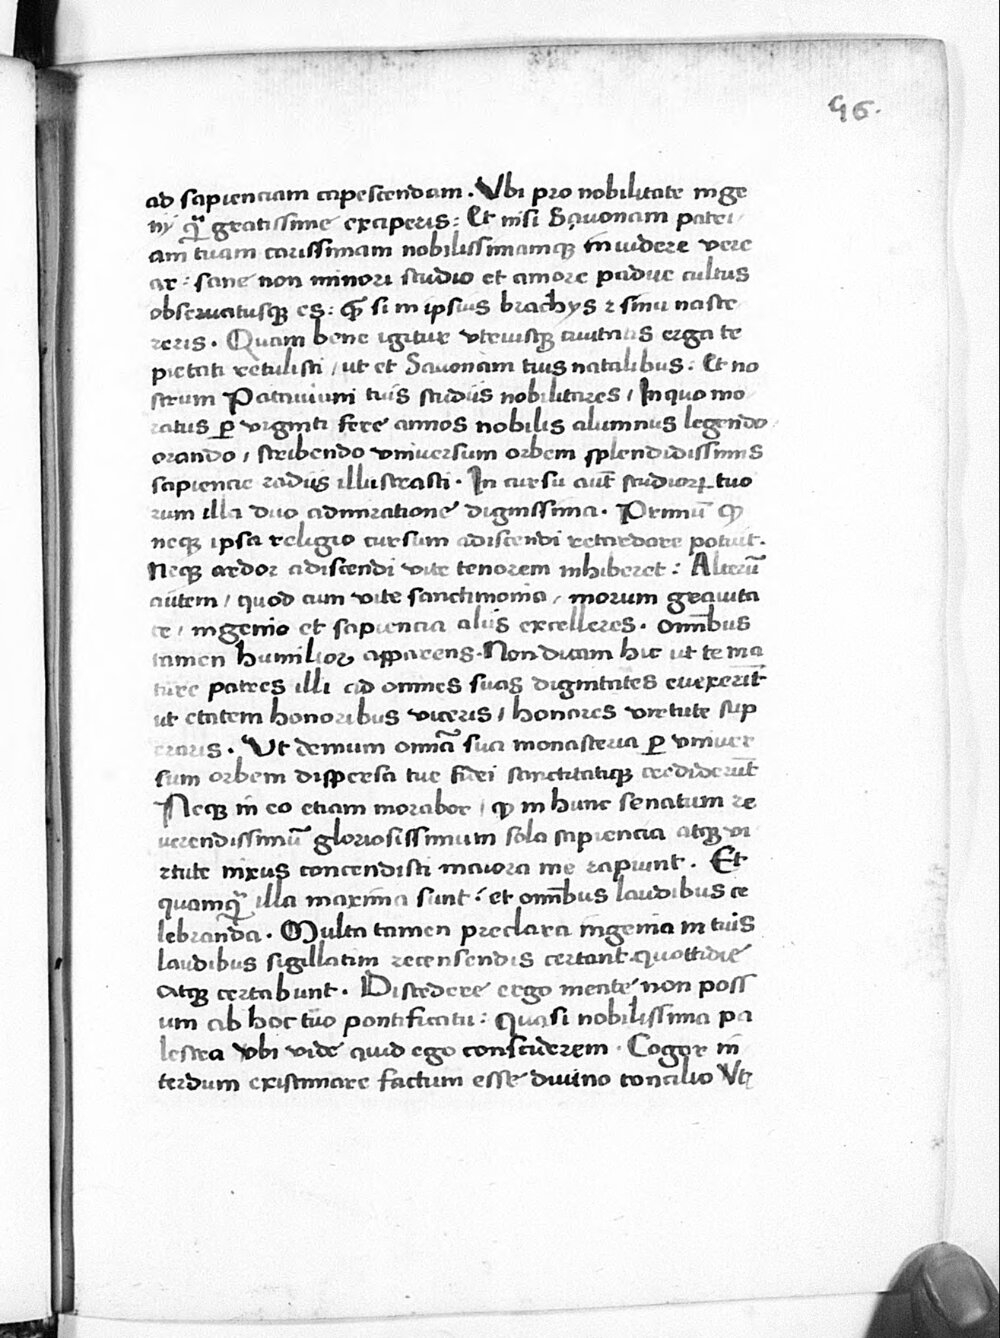 56.
ad sapienciam capescendam. Vbi pro nobilitate inge
nij q̃ gratissime exciperis: Et nisi Sauonam patri
am tuam carissimam nobilissimamq; inuidere vere
ar: sane non minori studio et amore padue cultus
obseruatusq; es: q̃ si in ipsius brachijs ⁊ sinu nasce
reris. Quam bene igitur vtriusq; ciuitatis erga te
pietati retulisti / ut et Sauonam tuis natalibus: Et no
strum Patauium tuis studiis nobilitares / In quo mo
ratus ꝑ viginti fere annos nobilis alumnus legendo
orando / scribendo vniuersum orbem splendidissimis
sapiencie radiis illustrasti. In cursu aut̃ studioꝝ tuo
rum illa duo admiratione dignissima. Primũ ꝙ
neq; ipsa religio cursum adiscendi retardare potuit.
Neq; ardor adiscendi vite tenorem inhiberet: Alterũ
autem / quod cum vite sanctimonia / morum grauita
te / ingenio et sapiencia aliis excelleres. om̃ibus
tamen humilior apparens. Non dicam hic ut te ma
ture patres illi ad omnes suas dignitates euexerĩt
ut etatem honoribus viceris / honores virtute sup
eraris. Vt demum omnĩa sua monasteria ꝑ vniuer
sum orbem dispersa tue fidei sanctitatiq; crediderũt
Neq; in eo etiam morabor / ꝙ in hunc senatum re
uerendissimũ gloriosissimum sola sapiencia atq; vi
rtute nixus concendisti maiora me rapiunt. Et
quamq̃ illa maxima sunt: et om̃ibus laudibus ce
lebranda. Multa tamen preclara ingenia in tuis
laudibus sigillatim recensendis certant quottidie
atq; certabunt. Discedere ergo mente non poss
um ab hoc tuo pontificatu: Quasi nobilissima pa
lestra vbi vide quid ego considerem. Cogor in
terdum existimare factum esse diuino concilio Vt